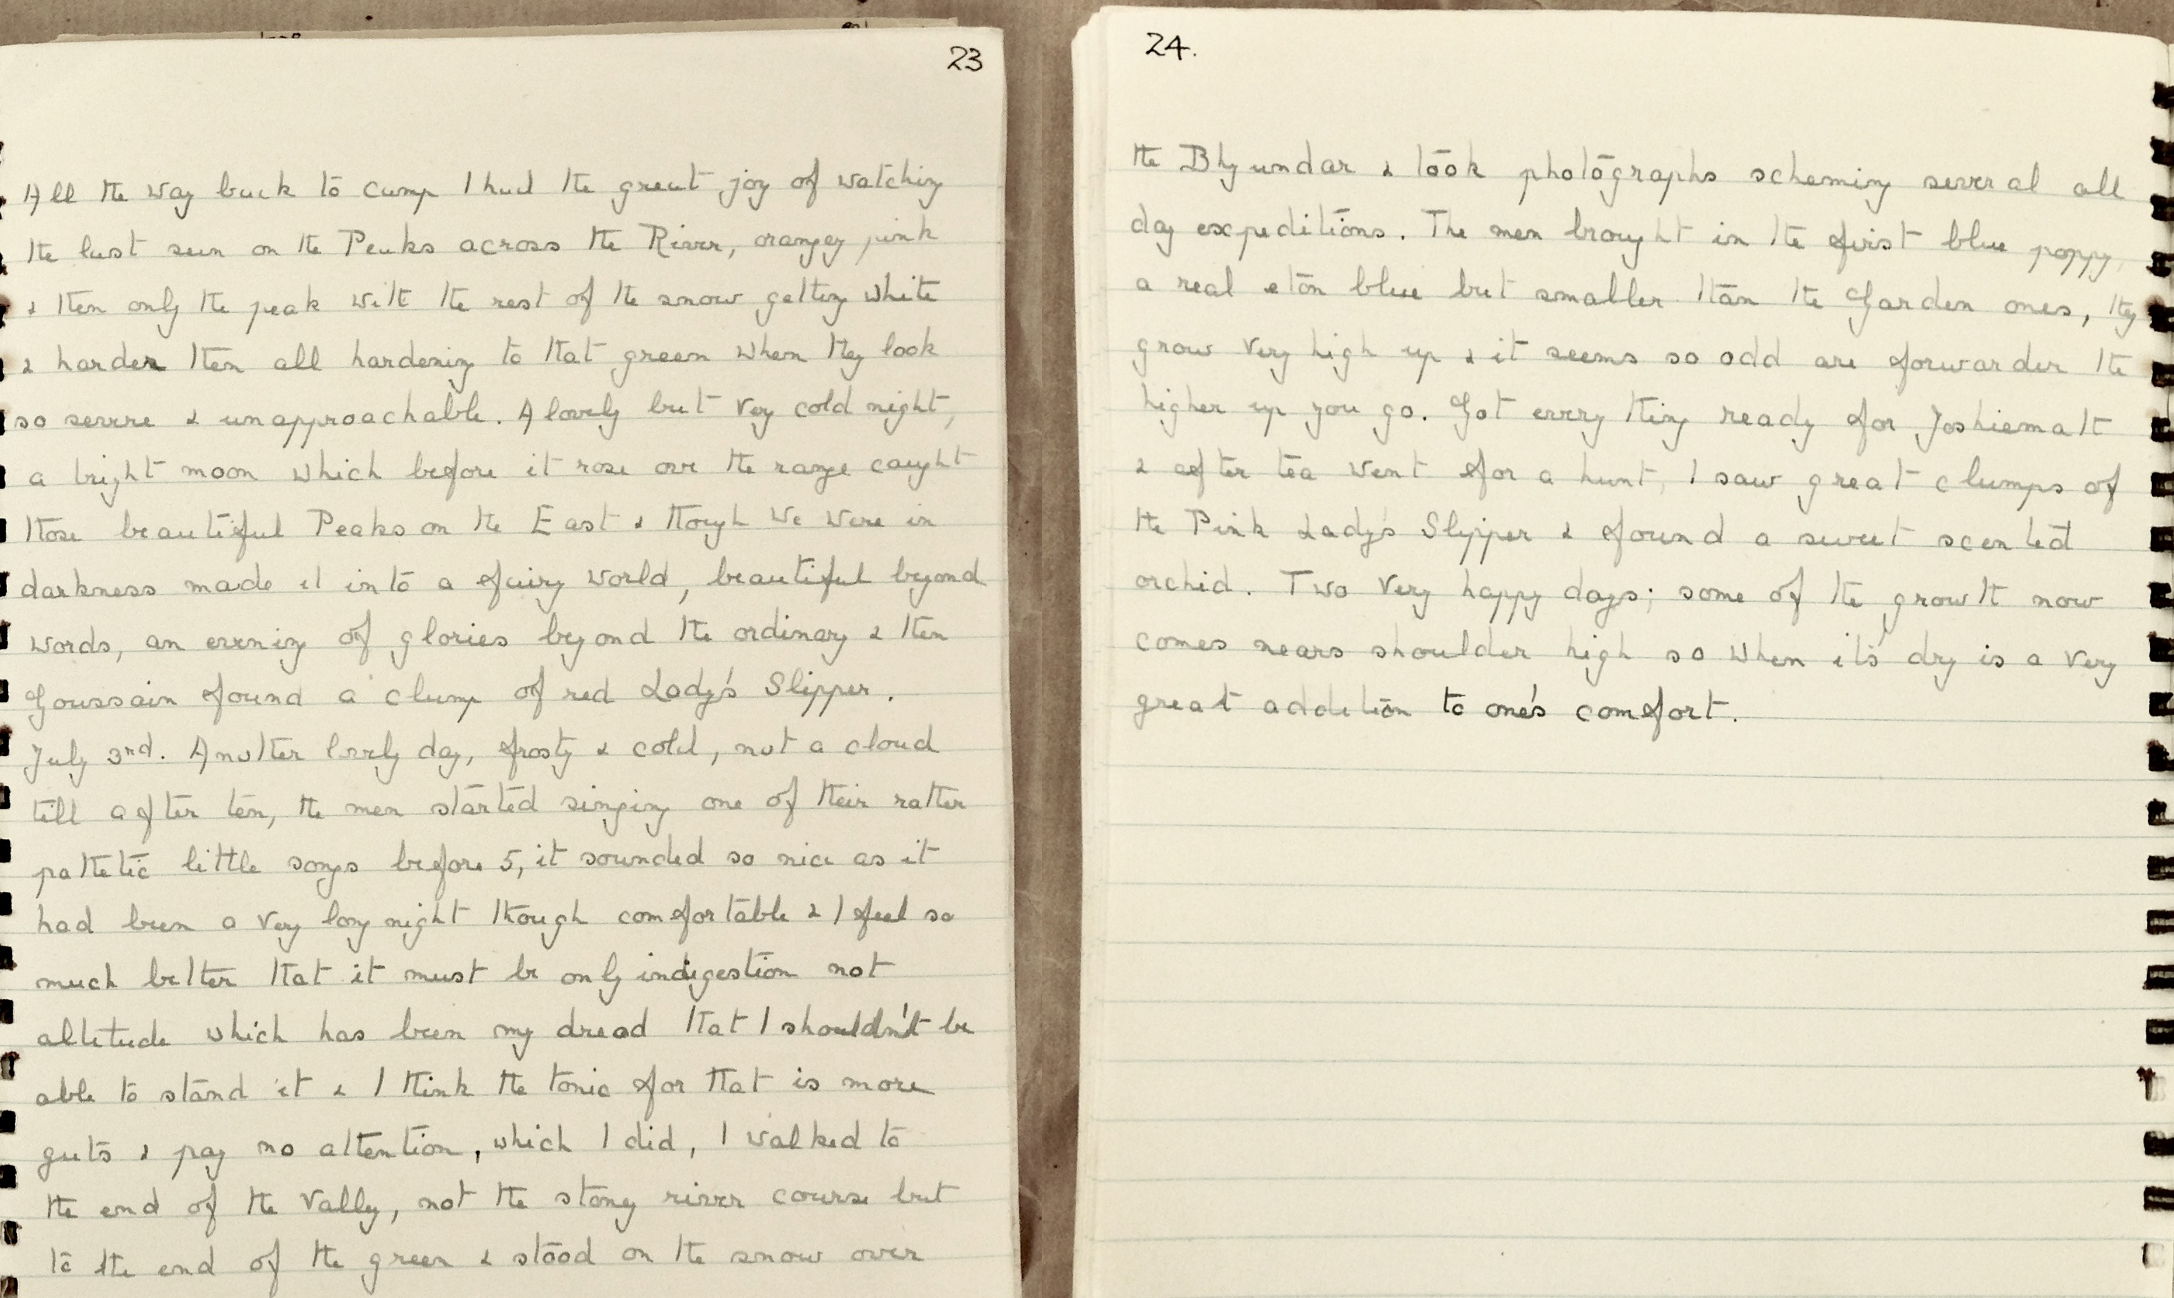 23
All the way back to camp I had the great joy of watching
the last sun on the Peaks across the River, orangey pink
& then only the peak with the rest of the snow getting white
& harder then all hardening to that green when they look
so severe & unapproachable. A lovely but very cold night,
a bright moon which before it rose over the range caught
those beautiful Peaks on the East & though we were in
darkness made it into a fairy world, beautiful beyond
words, an evening of glories beyond the ordinary & then
Goussain found a clump of red Lady's Slipper.
July 3rd. Another lovely day, frosty & cold, not a cloud
till after ten, the men started singing one of their rather
pathetic little songs before 5, it sounded so nice as it
had been a very long night though comfortable & I feel so
much better that it must be only indigestion not
altitude which has been my dread that I shouldn't be
able to stand it & I think the tonic for that is more
guts & pay no attention, which I did, I walked to
the end of the Vally, not the stony river course but
to the end of the green & stood on the snow over
24.
the Bhyundar & took photographs scheming several all
day expeditions. The men brought in the first blue poppy
a real eton blue but smaller than the Garden ones, they
grow very high up & it seems so odd are forwarder the
higher up you go. Got every thing ready for Joshiemath
& after tea went for a hunt, I saw great clumps of
the Pink Lady's Slipper & found a sweet scented
orchid. Two very happy days; some of the growth now
comes nears shoulder high so when it's dry is a very
great addition to one's comfort.